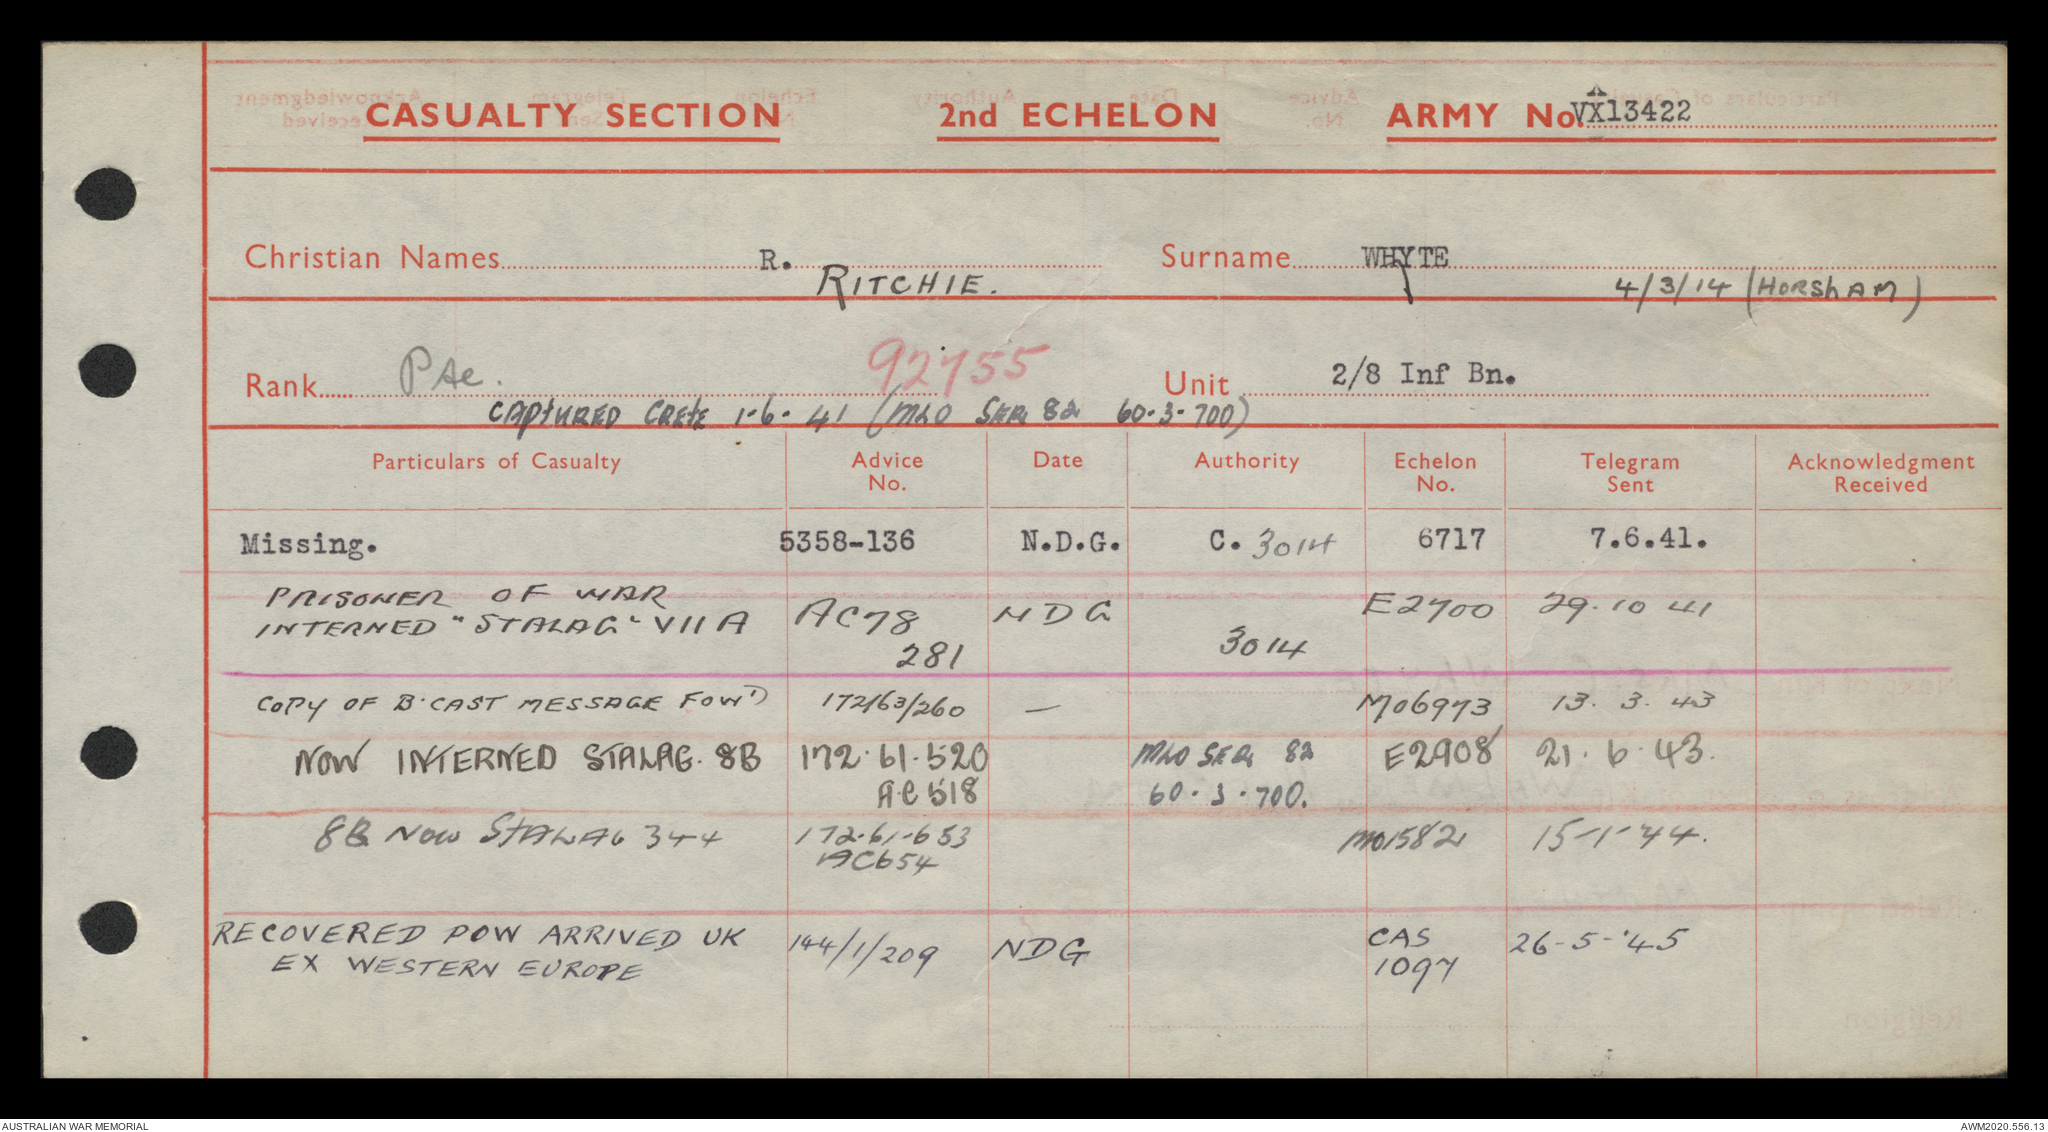 CASUALTY SECTION 2nd ECHELON ARMY No. VX13422
Christian Names R. Surname WHYTE
RITCHIE. 4/3/14 (HORSHAM)
Rank Pte. 92755 Unit 2/8 Inf Bn.
CAPTURED CRETE 1-6-41 (MLO SER 82 60-3-700)
Particulars of Casualty Advice No. Date Authority Echelon No. Telegram Sent Acknowledgment Received
Missing. 5358-136 N.D.G. C. 3014 6717 7.6.41.
PRISONER OF WAR
INTERNED "STALAG" VII A AC78 NDG E2700 29.10 41
281 3014
COPY OF B'CAST MESSAGE FOW'D 172/63/260 — M06973 13. 3. 43
NOW INTERNED STALAG. 8B 172.61.520 MLO SER 82 E2908 21.6.43.
AC 518 60.3.700.
8B NOW STALAG 344 172-61-653 M01582 15-1-44.
AC654
RECOVERED POW ARRIVED UK 144/1/209 NDG CAS 26-5-'45
EX WESTERN EUROPE 1097
AUSTRALIAN WAR MEMORIAL AWM2020.556.13